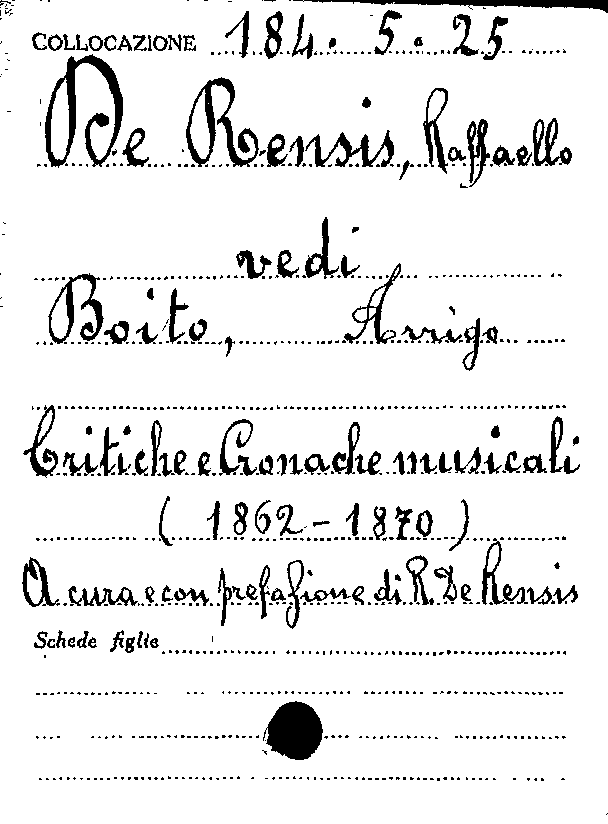 COLLOCAZIONE 184. 5. 25
De Rensis, Raffaello
vedi
Boito, Arrigo
Critiche e Cronache musicali
(1862-1870)
A cura e con prefazione di R. De Rensis
Schede figlie